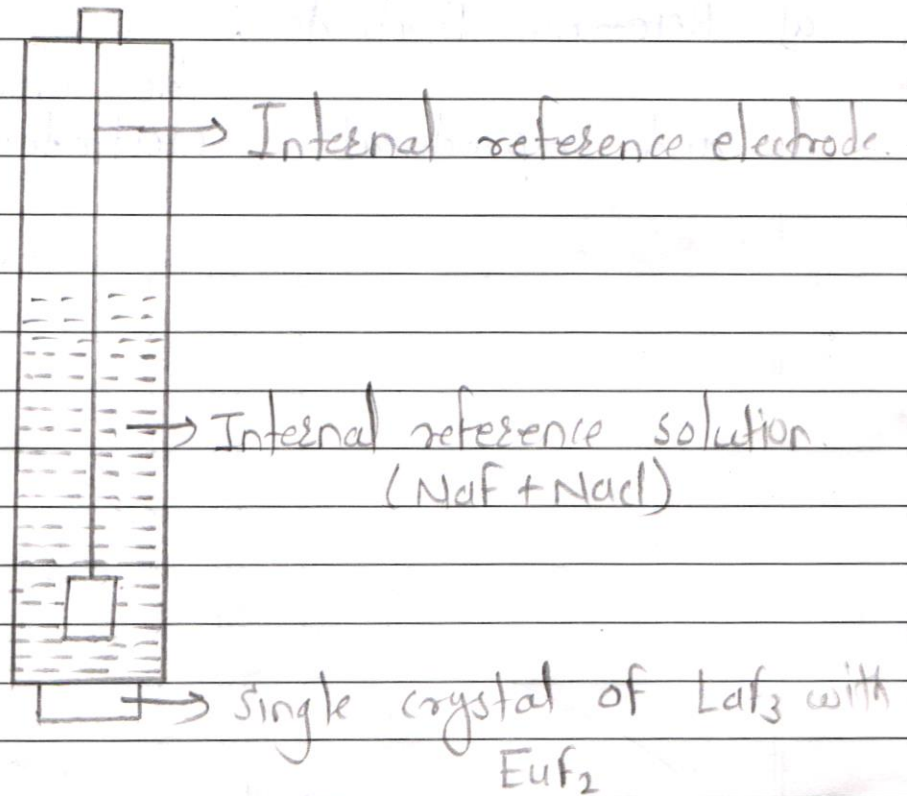 Internal reference electrode.
Internal reference solution.
(NaF + Nacl)
Single crystal of LaF₃ with
EuF₂